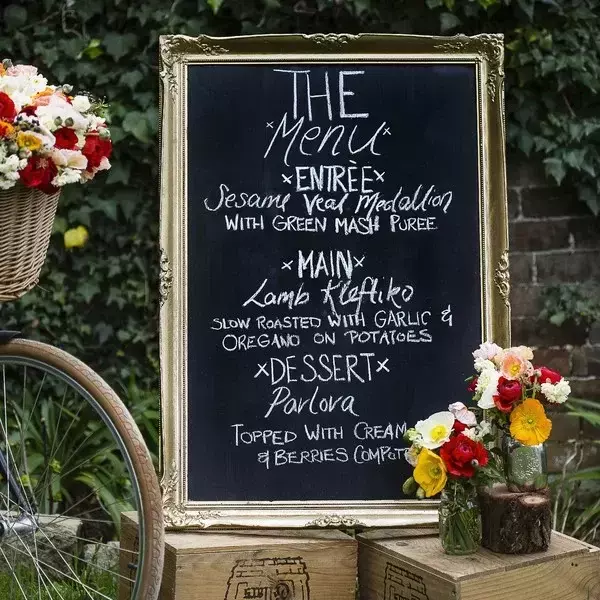 THE
×Menu×
×ENTRÈE×
Sesame Veal Medallion
WITH GREEN MASH PUREE
×MAIN×
Lamb Kleftiko
SLOW ROASTED WITH GARLIC &
OREGANO ON POTATOES
×DESSERT×
Pavlova
TOPPED WITH CREAM
& BERRIES COMPOTE